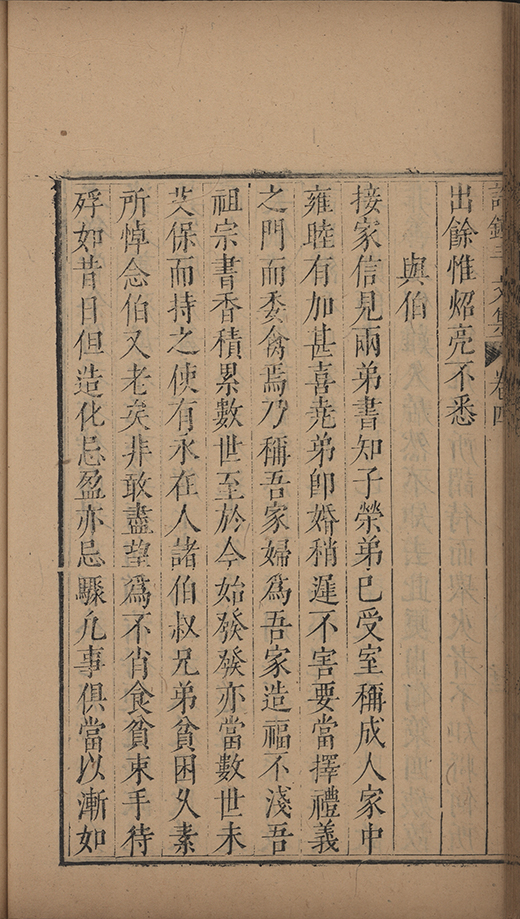 文集 卷四
出餘惟炤亮不悉
與伯
接家信見兩弟書知子榮弟已受室稱成人家中
雍睦有加甚喜堯弟卽婚稍遲不害要當擇禮義
之門而委禽焉乃稱吾家婦爲吾家造福不淺吾
祖宗書香積累數世至於今始發發亦當數世未
艾保而持之使有永在人諸伯叔兄弟貧困久素
所悼念伯又老矣非敢盡望爲不肖食貧束手待
殍如昔日但造化忌盈亦忌驟凢事俱當以漸如